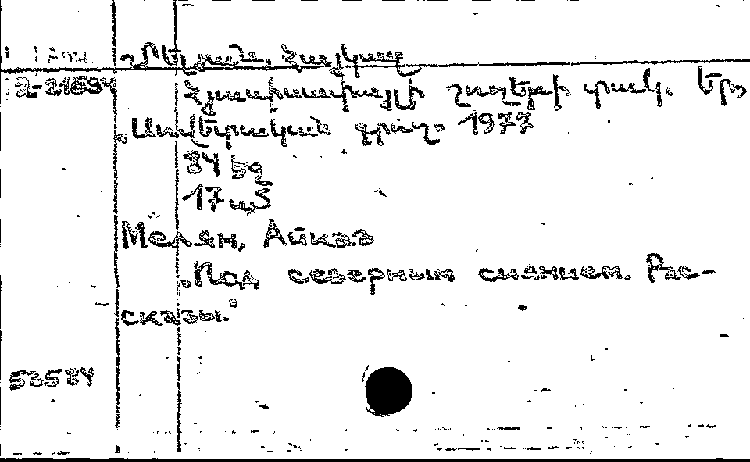 Մելյան, Հայկազ
Ձ-21694 Հյուսիսափայլի շողերի տակ. Եր.,
„Սովետական գրող" 1977
84 էջ
17 սմ
Мелян, Айказ
„Под северным сиянием. Рас-
сказы."